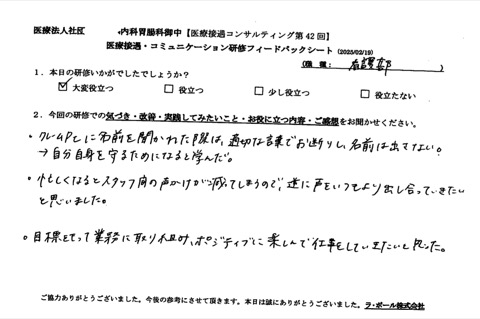 医療法人社団 内科胃腸科御中【医療接遇コンサルティング第42回】
医療接遇・コミュニケーション研修フィードバックシート(2025/02/19)
(職種: 看護部)
1.本日の研修いかがでしたでしょうか?
☑大変役立つ □役立つ □少し役立つ □役立たない
2.今回の研修での気づき・改善・実践してみたいこと・お役に立つ内容・ご感想をお聞かせください。
。クレームPtに名前を聞かれた際は、適切な言葉でお断りし、名前は出さない。
→自分自身を守るためになると学んだ。
。忙しくなるとスタッフ間の声かけが減ってしまうので、逆に声をいつもより出し合っていきたい
と思いました。
。目標をもって業務に取り組み、ポジティブに楽しんで仕事をしていきたいと思った。
ご協力ありがとうございました。今後の参考にさせて頂きます。本日は誠にありがとうございました。ラ・ポール株式会社